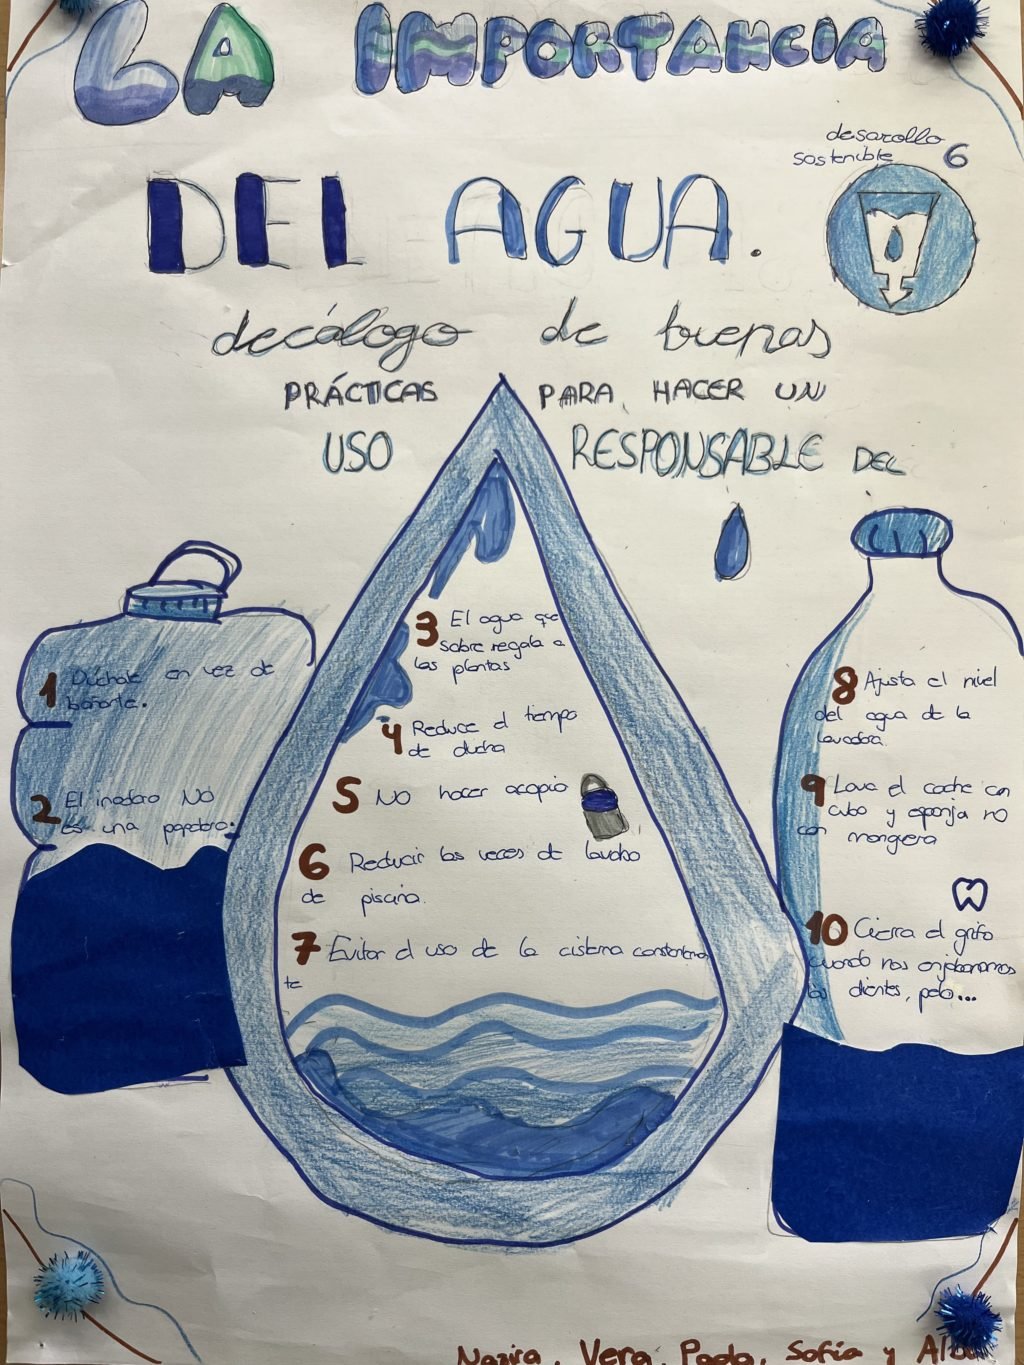 LA IMPORTANCIA
desarollo
sostenible 6
DEL AGUA.
decálogo de buenas
PRÁCTICAS PARA HACER UN
USO RESPONSABLE DEL
1 Dúchate en vez de
bañarte.
2 El inodoro NO
es una papelera.
3 El agua que
sobre regala a
las plantas
4 Reduce el tiempo
de ducha
5 NO hacer acopio
6 Reducir las veces de lavado
de piscina.
7 Evitar el uso de la cisterna constantemen
te
8 Ajusta el nivel
del agua de la
lavadora.
9 Lava el coche con
cubo y esponja no
con manguera
10 Cierra el grifo
cuando nos enjabonamos
los dientes, pelo...
Nazira, Vera, Paola, Sofía y